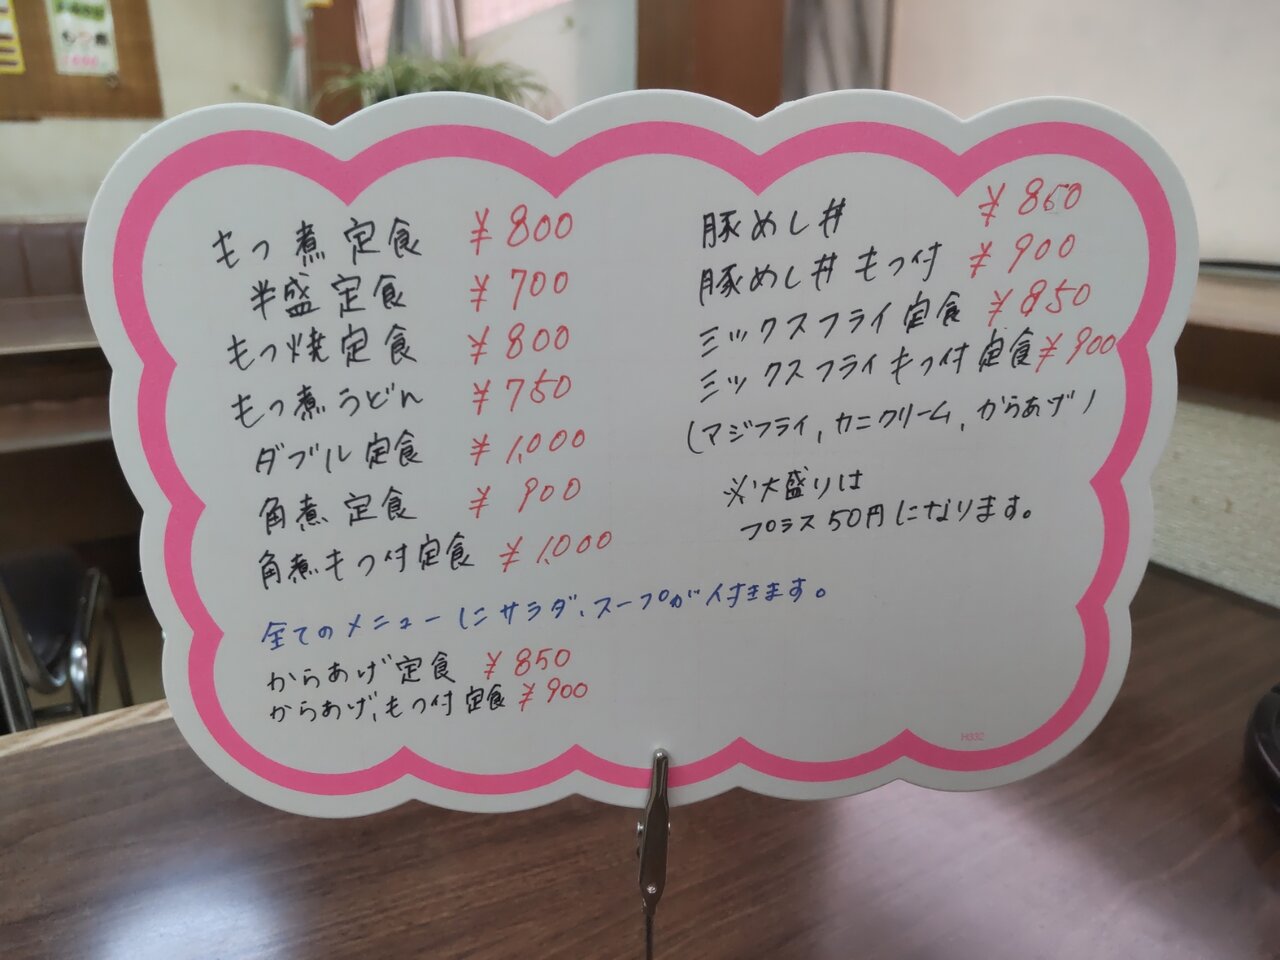 もつ煮定食 ¥800
半盛定食 ¥700
もつ焼定食 ¥800
もつ煮うどん ¥750
ダブル定食 ¥1,000
角煮定食 ¥900
角煮もつ付定食 ¥1,000
全てのメニューにサラダ、スープが付きます。
からあげ定食 ¥850
からあげ、もつ付定食 ¥900
豚めし丼 ¥850
豚めし丼もつ付 ¥900
ミックスフライ定食 ¥850
ミックスフライもつ付定食 ¥900
(マジフライ,カニクリーム,からあげ)
※大盛りは
プラス50円になります。
H832